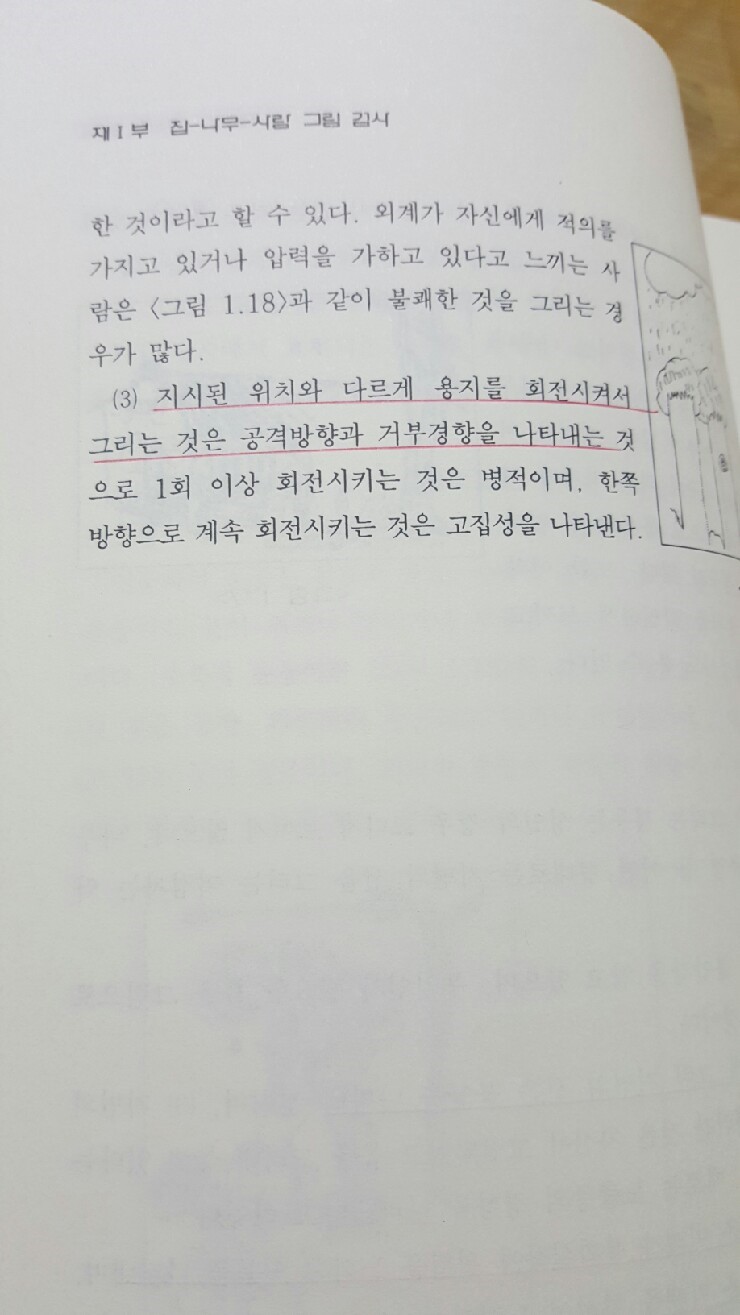 제 I 부 집-나무-사람 그림 검사
한 것이라고 할 수 있다. 외계가 자신에게 적의를
가지고 있거나 압력을 가하고 있다고 느끼는 사
람은 〈그림 1.18〉과 같이 불쾌한 것을 그리는 경
우가 많다.
(3) 지시된 위치와 다르게 용지를 회전시켜서
그리는 것은 공격방향과 거부경향을 나타내는 것
으로 1회 이상 회전시키는 것은 병적이며, 한쪽
방향으로 계속 회전시키는 것은 고집성을 나타낸다.